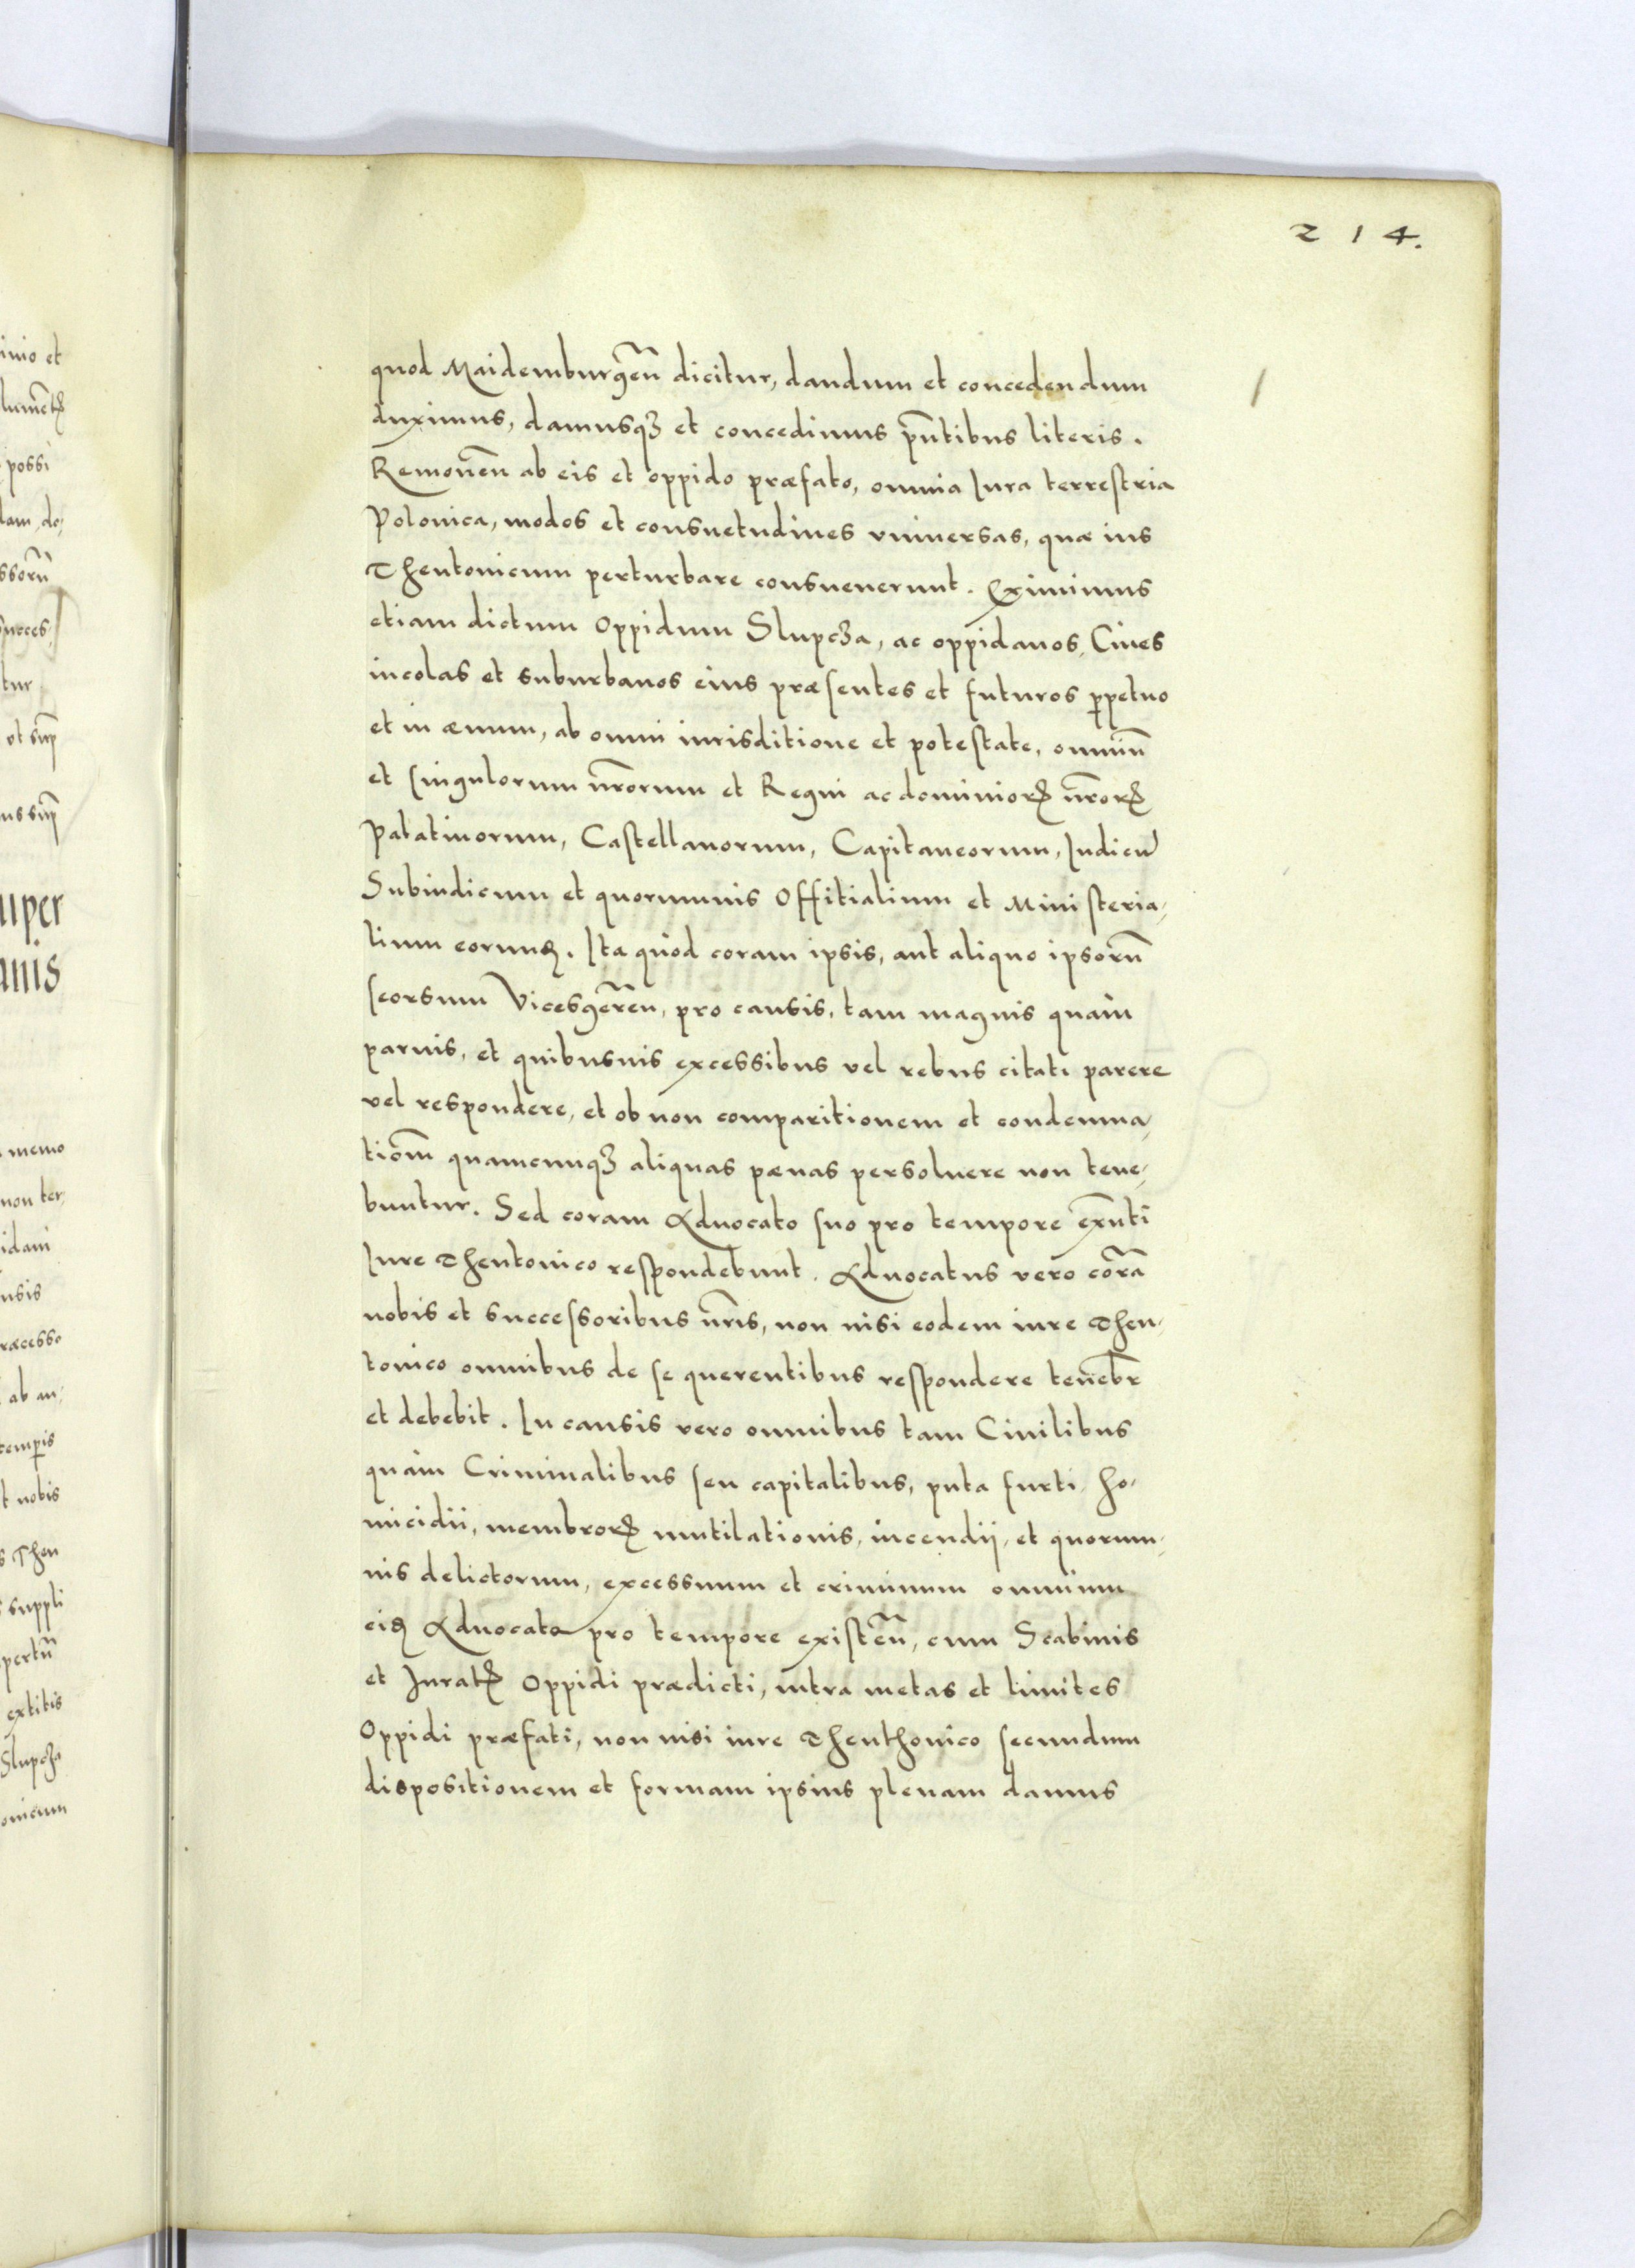 214.
quod Maidemburgen̄ dicitur, dandum et concedendum
duximus, damusqꝫ et concedimus pn̄tibus literis.
Remouen̄ ab eis et oppido præfato, omnia Iura terrestria
Polonica, modos et consuetudines vniuersas, quæ ius
Theutonicum perturbare consueuerunt. Eximimus
etiam dictum Oppidum Slupcza, ac oppidanos, Ciues
incolas et suburbanos eius præsentes et futuros ꝑpetuo
et in æuum, ab omni iurisditione et potestate, omniū
et singulorum nr̄orum et Regni ac dominioꝝ nr̄oꝝ
Palatinorum, Castellanorum, Capitaneorum, Iudicū
Subiudicum et quorumuis Offitialium et Ministeria,
lium eorumꝗ. Ita quòd coram ipsis, aut aliquo ipsorū
seorsum Vicesgeren̄, pro causis, tam magnis quàm
paruis, et quibusuis excessibus vel rebus citati parere
vel respondere, et ob non comparitionem et condemna,
tiōm quamcunqꝫ aliquas pænas persoluere non tene,
buntur. Sed coram Aduocato suo pro tempore exn̄ti
Iure Theutonico respondebunt. Aduocatus vero corā
nobis et successoribus nr̄is, non nisi eodem iure Theu,
tonico omnibus de se querentibus respondere tenebr̄
et debebit. In causis vero omnibus tam Ciuilibus
quàm Criminalibus seu capitalibus, puta furti, ho,
micidii, membroꝝ mutilationis, incendij, et quorum,
uis delictorum, excessuum et criminum omnium
eiꝗ Aduocato pro tempore existen̄, cum Scabinis
et Juratꝭ Oppidi prædicti, intra metas et limites
Oppidi præfati, non nisi iure Theuthonico secundum
dispositionem et formam ipsius plenam damus